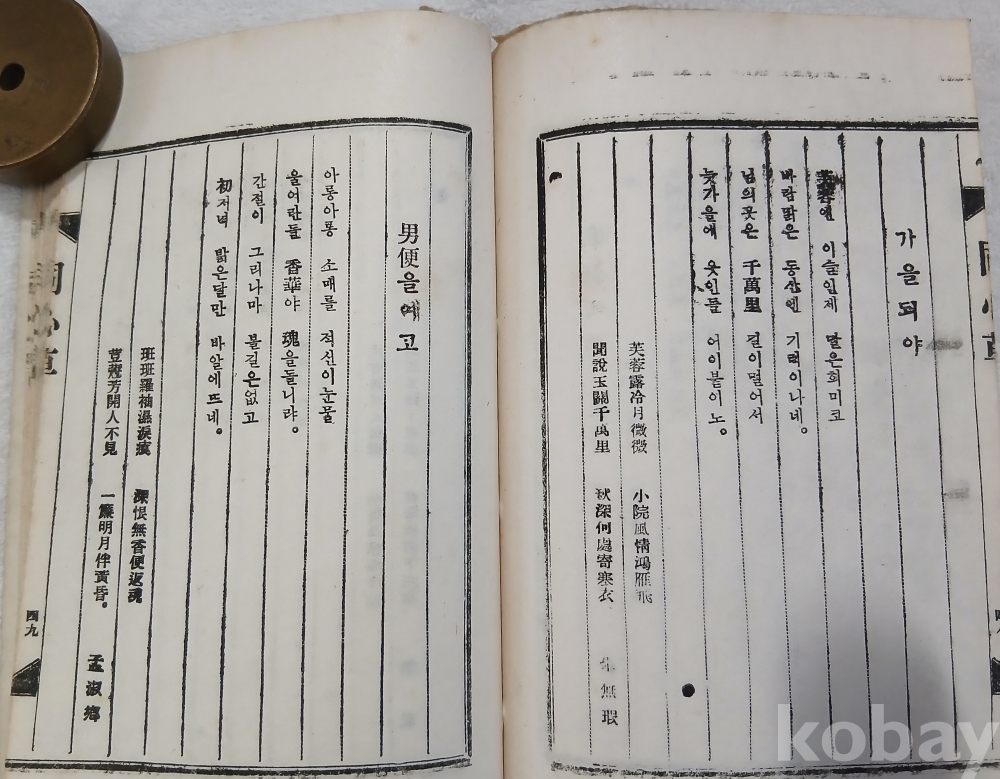 가을되야
芙蓉엔 이슬인제 달은희미코
바람맑은 동산엔 기러이나네。
님의곳은 千萬里 길이멀어서
늦가을에 옷인들 어이붙이노。
芙蓉露冷月微微 小院風情鴻雁飛
聞說玉關千萬里 秋深何處寄寒衣
無瑕
男便을에고
아롱아롱 소매를 적신이눈물
울어란들 香華야 魂을돌니랴。
간절이 그리나마 볼길은없고
初저녁 맑은달만 바알에뜨네。
班班羅袖濕淚痕 深恨無香便返魂
荳蔲芳開人不見 一簾明月伴黃昏。
孟淑鄕
四九
kobay